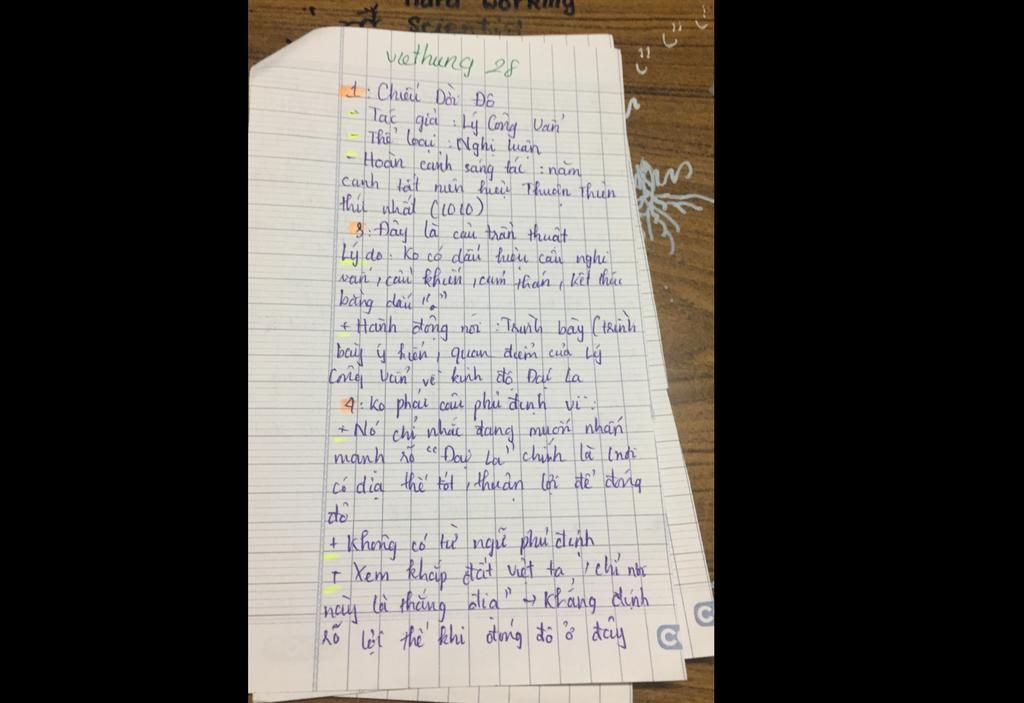 Hard Working
Scientist
viethung 28
1: Chiếu Dời Đô
- Tác giả : Lý Công Uẩn
- Thể loại : Nghị luận
- Hoàn cảnh sáng tác : năm
canh tất niên hiệu Thuận Thiên
thứ nhất (1010)
3: Đây là câu trần thuật
Lý do: Ko có dấu hiệu câu nghi
vấn, câu khiến, cảm thán, kết thúc
bằng dấu "."
+ Hành động nói : Trình bày (trình
bày ý kiến, quan điểm của Lý
Công Uẩn về kinh đô Đại La
4: Ko phải câu phủ định vì:
+ Nó chỉ nhắc đang muốn nhấn
mạnh rõ "Đại La" chính là nơi
có địa thế tốt, thuận lợi để đóng
đô
+ Không có từ ngữ phủ định
+ Xem khắp đất việt ta, chỉ nơi
này là thắng địa" → Khẳng định
rõ lợi thế khi đóng đô ở đây